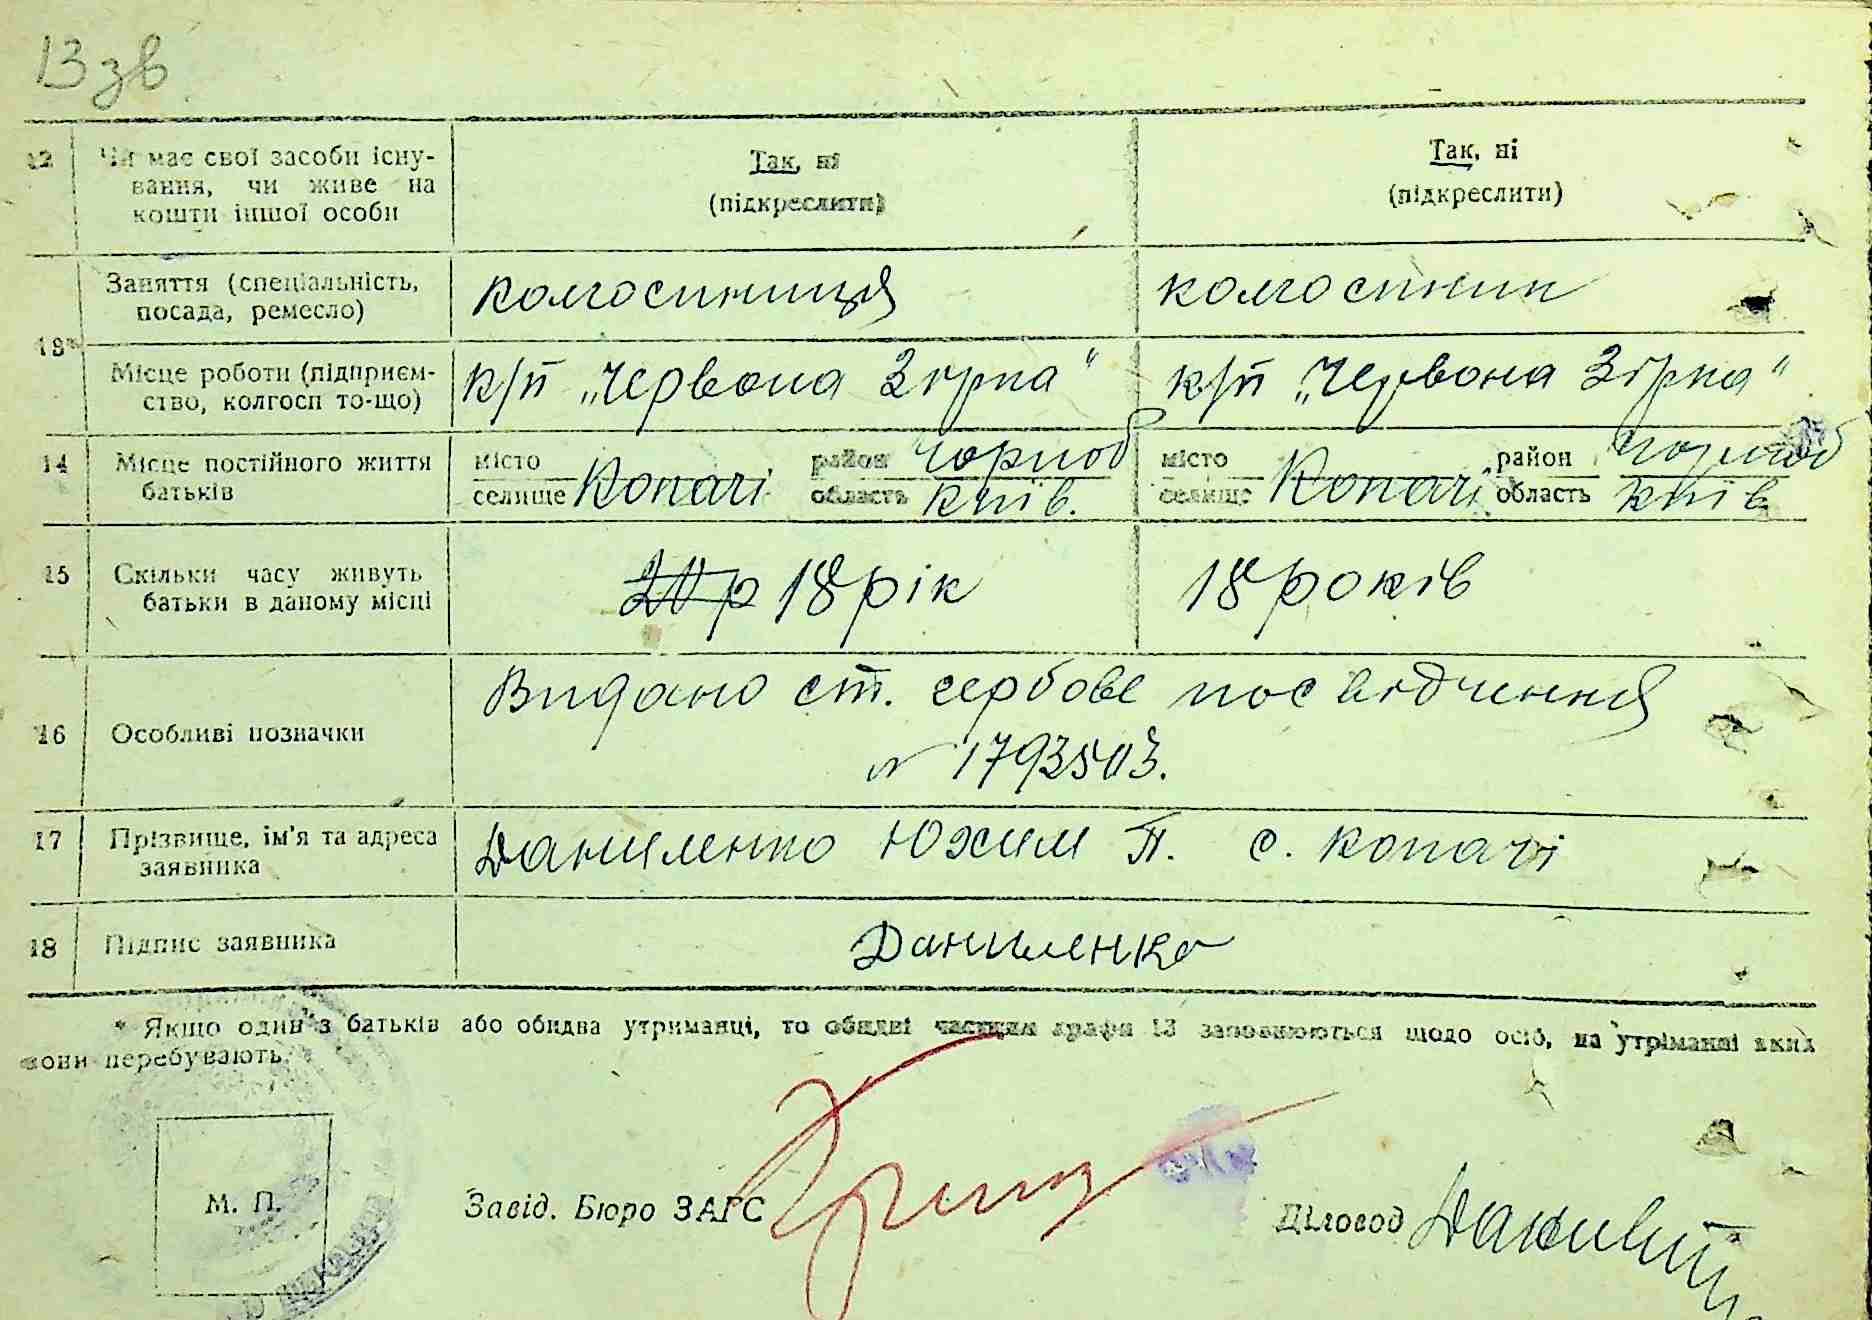 13 зв
12 Чи має свої засоби існу-
вання, чи живе на
кошти іншої особи
Так, ні
(підкреслити)
Так, ні
(підкреслити)
13*
Заняття (спеціальність,
посада, ремесло)
колгоспниця
колгоспник
Місце роботи (підприєм-
ство, колгосп то-що)
к/п „Червона Зірка"
к/п „Червона Зірка"
14 Місце постійного життя
батьків
місто
селище Копачі
район Чорноб
область Київ.
місто
селище Копачі
район Чорноб
область Київ
15 Скільки часу живуть
батьки в даному місці
20 р 18 рік
18 років
16 Особливі позначки
Видано ст. гербове посвідчення
№ 1793503.
17 Прізвище, ім'я та адреса
заявника
Даниленко Юхим П. с. Копачі
18 Підпис заявника
Даниленко
* Якщо один з батьків або обидва утриманці, то обидві частини графи 13 заповнюються щодо осіб, на утріманні яких
вони перебувають.
М. П.
Завід. Бюро ЗАГС
Діловод